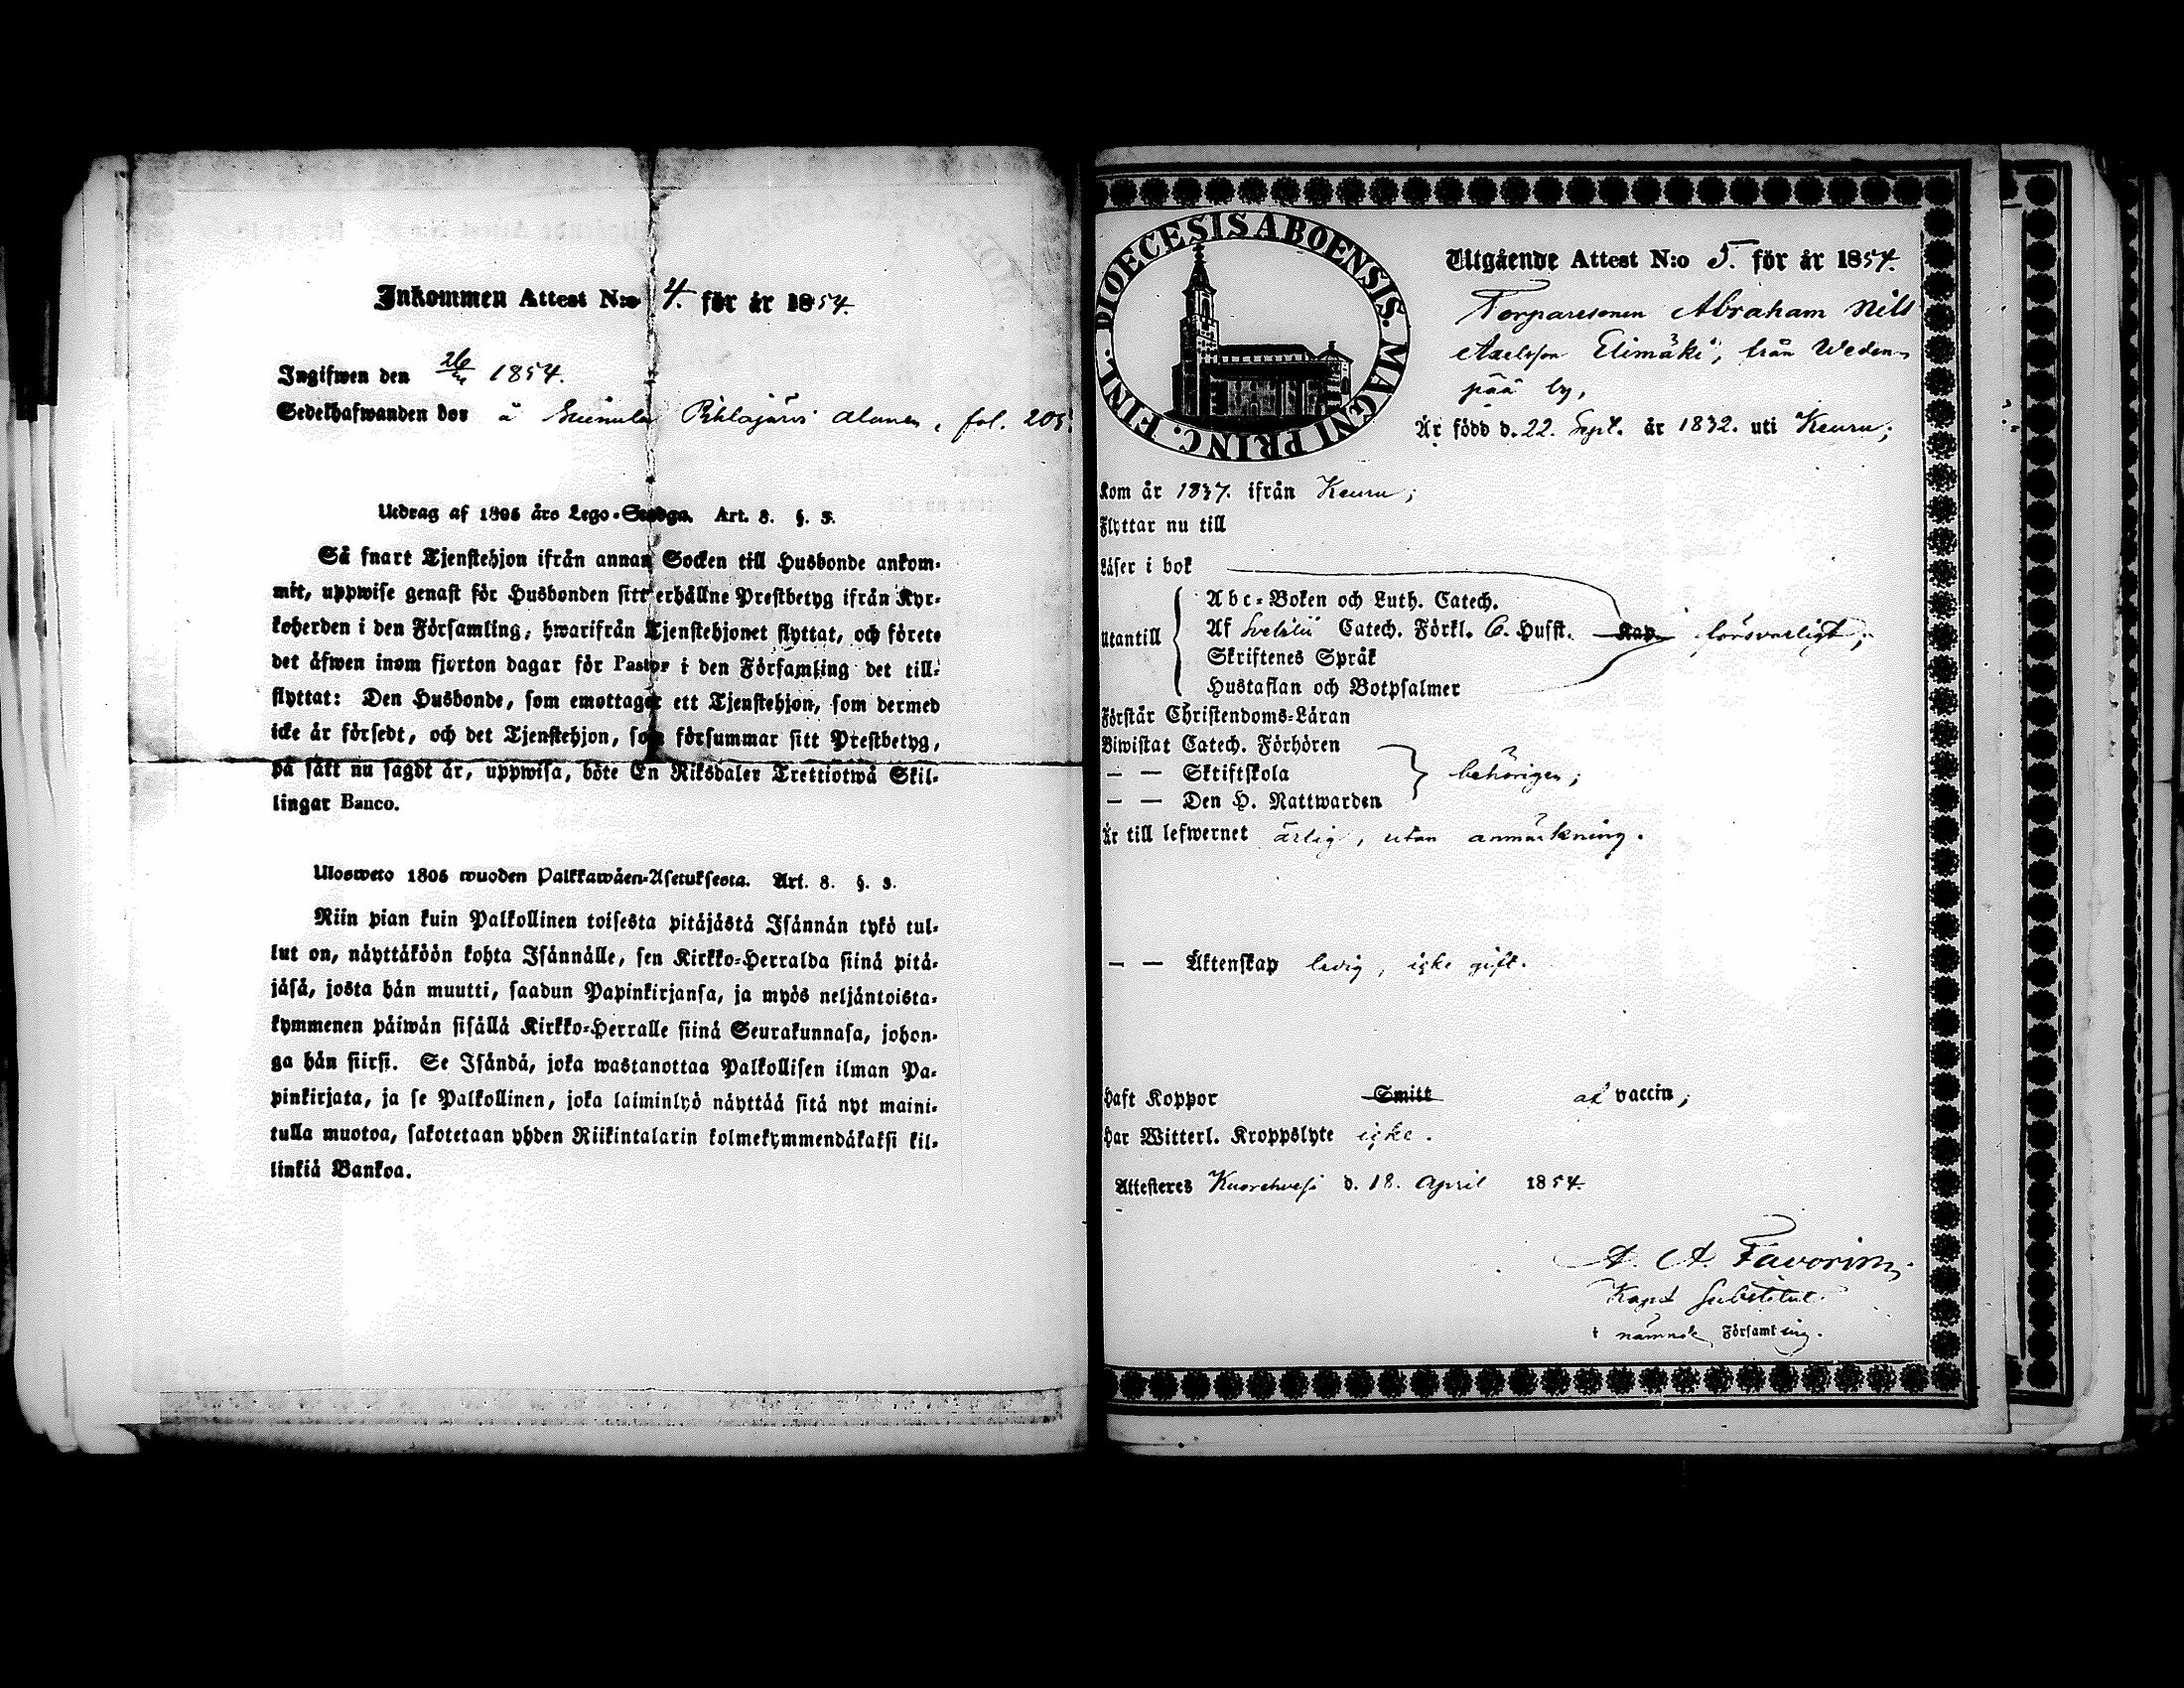 Inkommen Attest N:o 4. för år 1854.
Ingifwen den 26/4 1854.
Sedelhafwanden bor å Pihlajärvi Alanen, fol. 205.
Utdrag af 1805 års Lego-Stadga. Art. 8. §. 3.
Så snart Tjenstehjon ifrån annan Socken till Husbonde ankom-
mit, uppwise genast för Husbonden sitt erhållne Prestbetyg ifrån Kyr-
koherden i den Församling, hwarifrån Tjenstehjonet flyttat, och förete
det äfwen inom fjorton dagar för Pastor i den Församling det till-
flyttat: Den Husbonde, som emottager ett Tjenstehjon, som dermed
icke är försedt, och det Tjenstehjon, som försummar sitt Prestbetyg,
på sätt nu sagdt är, uppwisa, böte En Riksdaler Trettiotwå Skil-
lingar Banco.
Ulosweto 1805 wuoden Palkkawäen-Asetuksesta. Art. 8. §. 3.
Niin pian kuin Palkollinen toisesta pitäjästä Isännän tykö tul-
lut on, näyttäköön kohta Isännälle, sen Kirkko-Herralda siinä pitä-
jäsä, josta hän muutti, saadun Papinkirjansa, ja myös neljäntoista-
kymmenen päiwän sisällä Kirkko-Herralle siinä Seurakunnasa, johon-
ga hän siirsi. Se Isändä, joka wastanottaa Palkollisen ilman Pa-
pinkirjata, ja se Palkollinen, joka laiminlyö näyttää sitä nyt maini-
tulla muotoa, sakotetaan yhden Riikintalarin kolmekymmendäkaksi kil-
linkiä Bankoa.
DIOECESIS ABOENSIS. MAGNI PRINC. FINL.
Utgående Attest N:o 5. för år 1854.
Torparesonen Abraham Nils
Axelsson Elimäki, från Weden-
pää by,
Är född d. 22. Sept. år 1832. uti Keuru;
Kom år 1837. ifrån Keuru;
Flyttar nu till
Läser i bok
Utantill
Abc-Boken och Luth. Catech.
Af Svebilii Catech. Förkl. 6. Husst. Kap. försvarligt;
Skriftenes Språk
Hustaflan och Botpsalmer
Förstår Christendoms-Läran
Biwistat Catech. Förhören
— — Skriftskola behörigen;
— — Den H. Nattwarden
Är till lefwernet ärlig, utan anmärkning.
— — Äktenskap ledig, icke gift.
Haft Koppor Smitt af vaccin;
Har Witterl. Kroppslyte icke.
Attesteres Kuorehvesi d. 18. April 1854.
A. A. Favorin,
Kapl. Substitut.
i nämnde Församling.